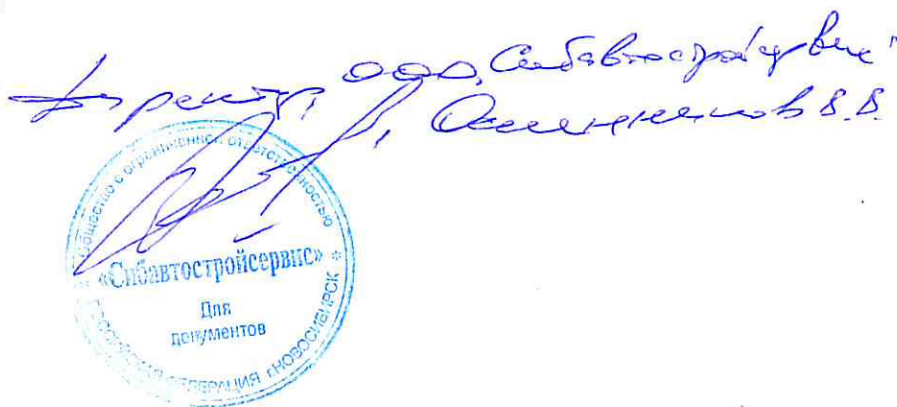 Директор ООО „Сибавтостройсервис"
Осинников В.В.
Общество с ограниченной ответственностью
«Сибавтостройсервис»
Для
документов
РОССИЙСКАЯ ФЕДЕРАЦИЯ г.НОВОСИБИРСК